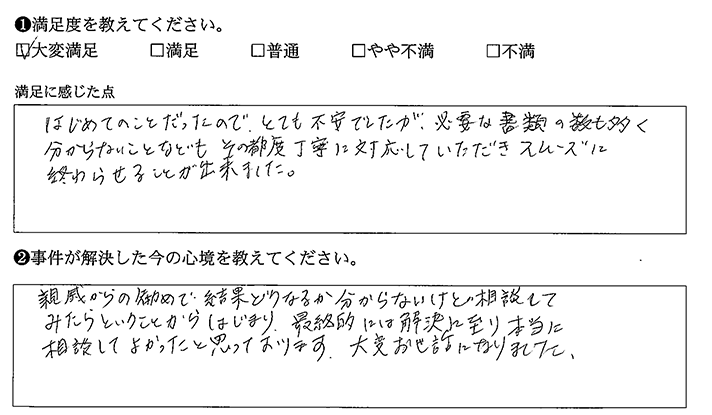 ❶満足度を教えてください。
☑大変満足 □満足 □普通 □やや不満 □不満
満足に感じた点
はじめてのことだったので、とても不安でしたが、必要な書類の数も多く
分からないことなども その都度丁寧に対応していただきスムーズに
終わらせることが出来ました。
❷事件が解決した今の心境を教えてください。
親戚からの勧めで、結果どうなるか分からないけどの相談して
みたらということからはじまり、最終的には解決に至り本当に
相談してよかったと思っております。大変お世話になりました、